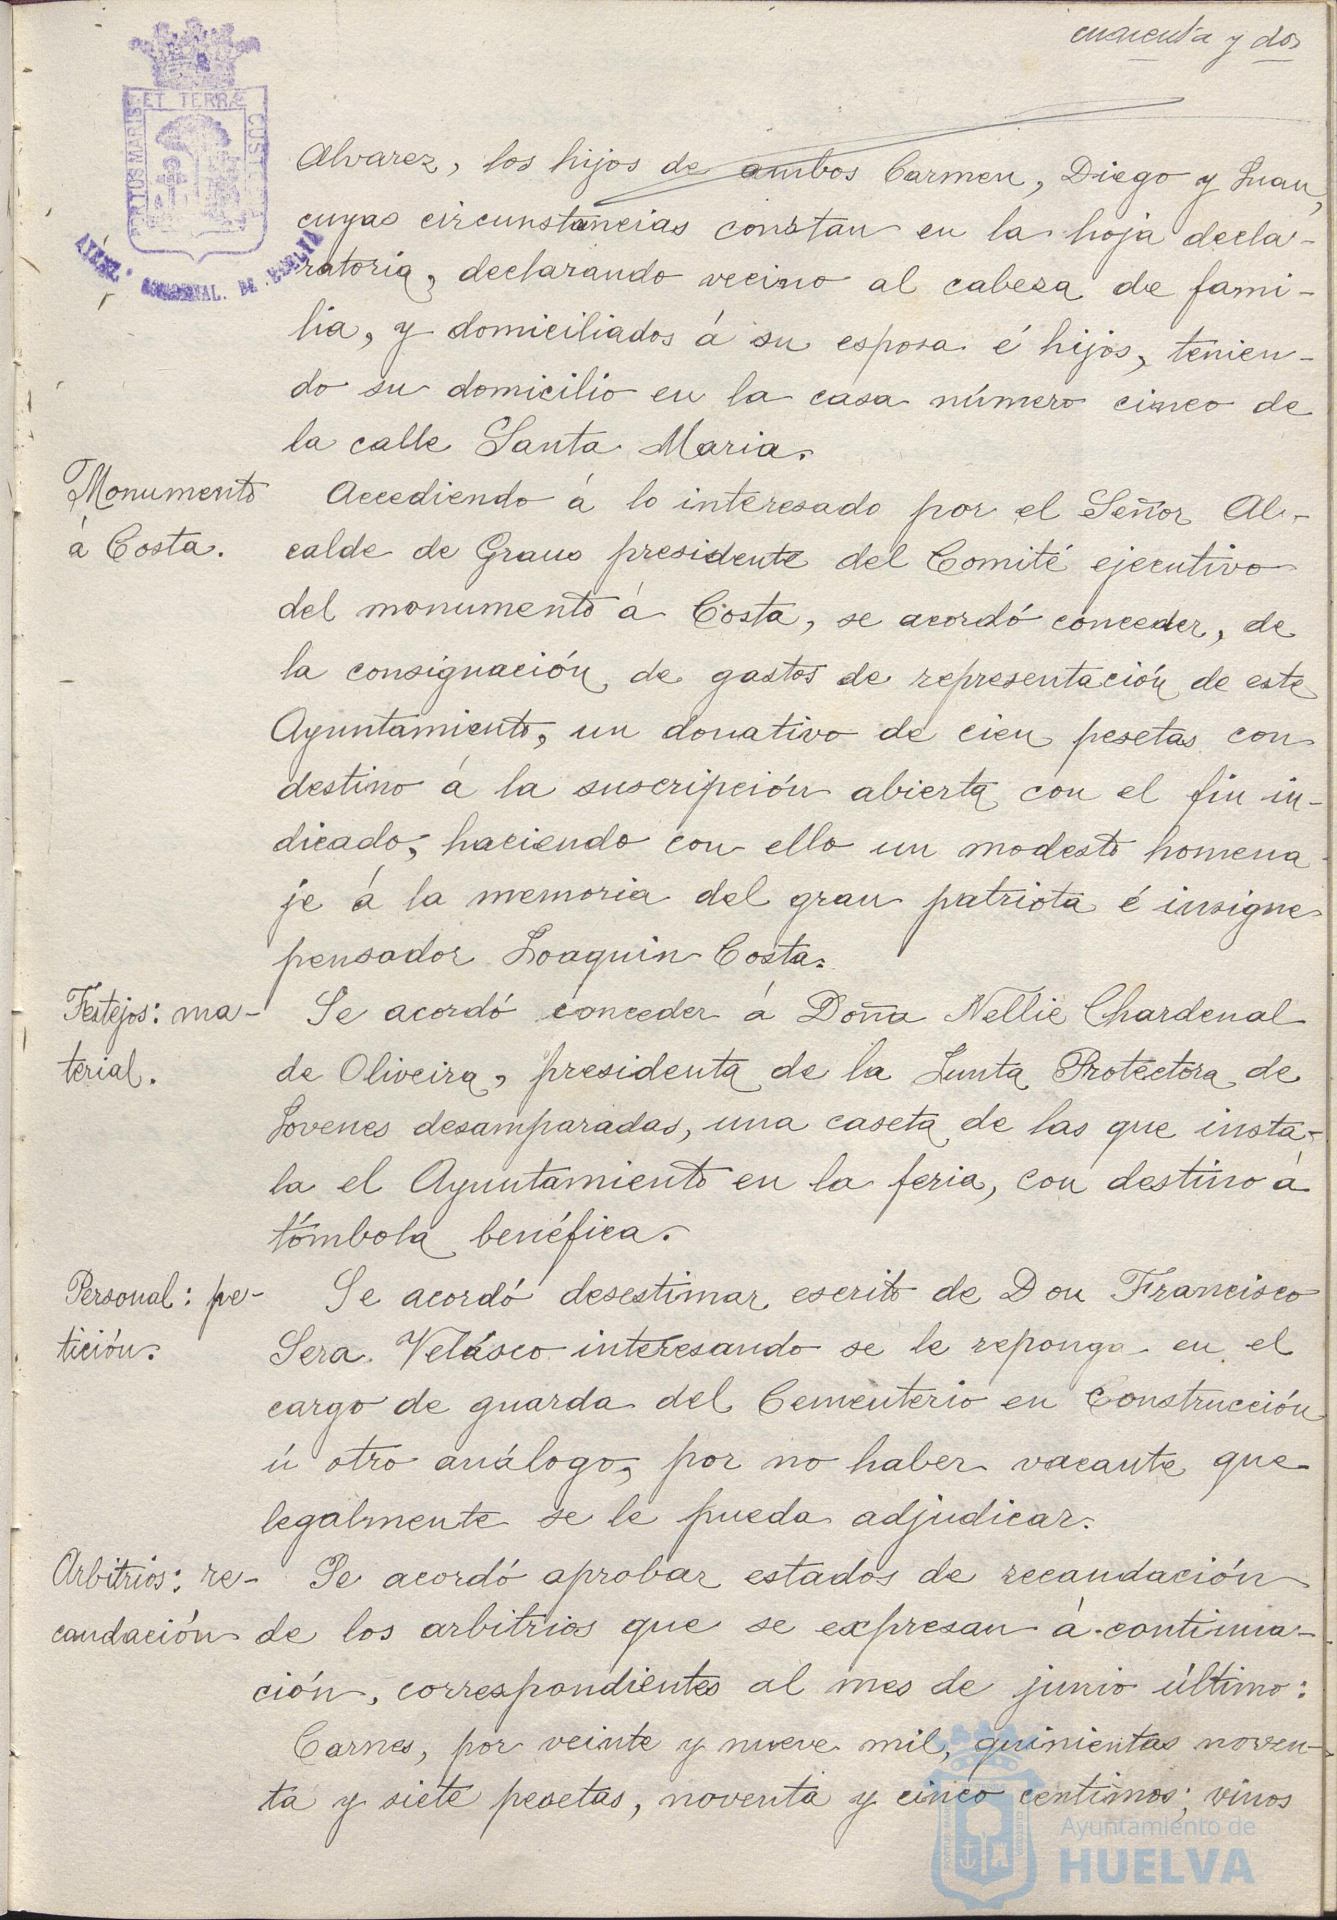 cuarenta y dos
PORTUS MARIS ET TERRÆ CUSTODIA
Alvarez, los hijos de ambos Carmen, Diego y Juan,
cuyas circunstancias constan en la hoja decla-
ratoria, declarando vecino al cabeza de fami-
lia, y domiciliados á su esposa é hijos, tenien-
do su domicilio en la casa número cinco de
la calle Santa Maria.
Monumento
á Costa.
Accediendo á lo interesado por el Señor Al-
calde de Graus presidente del Comité ejecutivo
del monumento á Costa, se acordó conceder, de
la consignación de gastos de representación de este
Ayuntamiento, un donativo de cien pesetas con
destino á la suscripción abierta con el fin in-
dicado, haciendo con ello un modesto homena-
je á la memoria del gran patriota é insigne
pensador Joaquin Costa.
Festejos: ma-
terial.
Se acordó conceder á Doña Nellie Chardenal
de Oliveira, presidenta de la Junta Protectora de
Jovenes desamparadas, una caseta de las que insta-
la el Ayuntamiento en la feria, con destino á
tómbola benéfica.
Personal: pe-
tición.
Se acordó desestimar escrito de Don Francisco
Sera Velásco interesando se le reponga en el
cargo de guarda del Cementerio en Construcción
ú otro análogo, por no haber vacante que
legalmente se le pueda adjudicar.
Arbitrios: re-
caudación
Se acordó aprobar estados de recaudación
de los arbitrios que se expresan á continua-
ción, correspondientes al mes de junio último:
Carnes, por veinte y nueve mil, quinientas noven-
ta y siete pesetas, noventa y cinco centimos; vinos
Ayuntamiento de
HUELVA